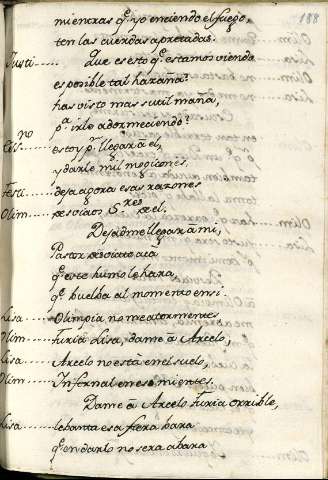 188
mientras q̃. yo enciendo el fuego,
ten las cuerdas apretadas.
Justi..... Que es esto q̃. estamos viendo
es posible tal hazaña?
has visto mas sutil maña,
pa. irle adormeciendo?
Celi.no.... estoy pr. llegar a el,
y darle mil mogicones.
Justi.... deja agora esas razones
Olim..... desviaos S.res de el.
Dejadme llegar a mi,
Pastor
q̃. este humo le hara,
q̃. buelba al momento en si.
Lisa..... Olimpia no me atormentes
Olim..... furia Lisa, dame â Arcelo,
Lisa..... Arcelo no està en el suelo,
Olim.... Infernal en eso mientes.
Dame â Arcelo furia orrible,
Lisa..... lebanta esa fiera bara
q̃. en darlo no sera abara